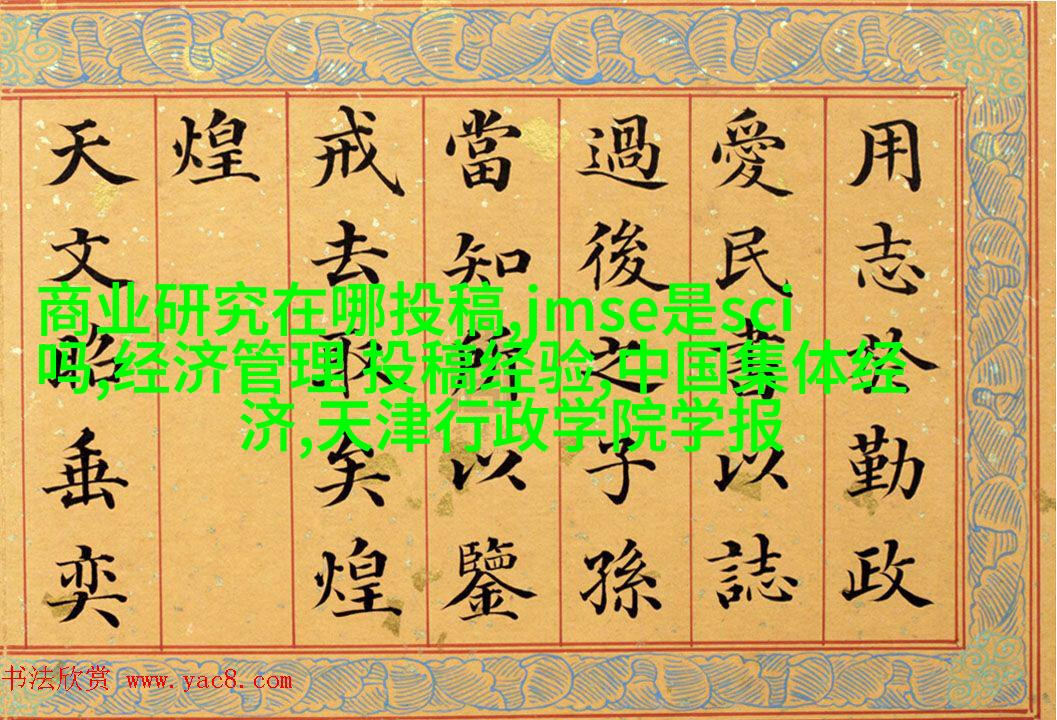 用志勤政
愛民書以誌
過後之子孫
當知所以鑒
戒去取矣煌
煌
天文昭垂奕
商业研究在哪投稿,jmse是sci
吗,经济管理 投稿经验,中国集体经
济,天津行政学院学报
书法欣赏 www.yac8.com